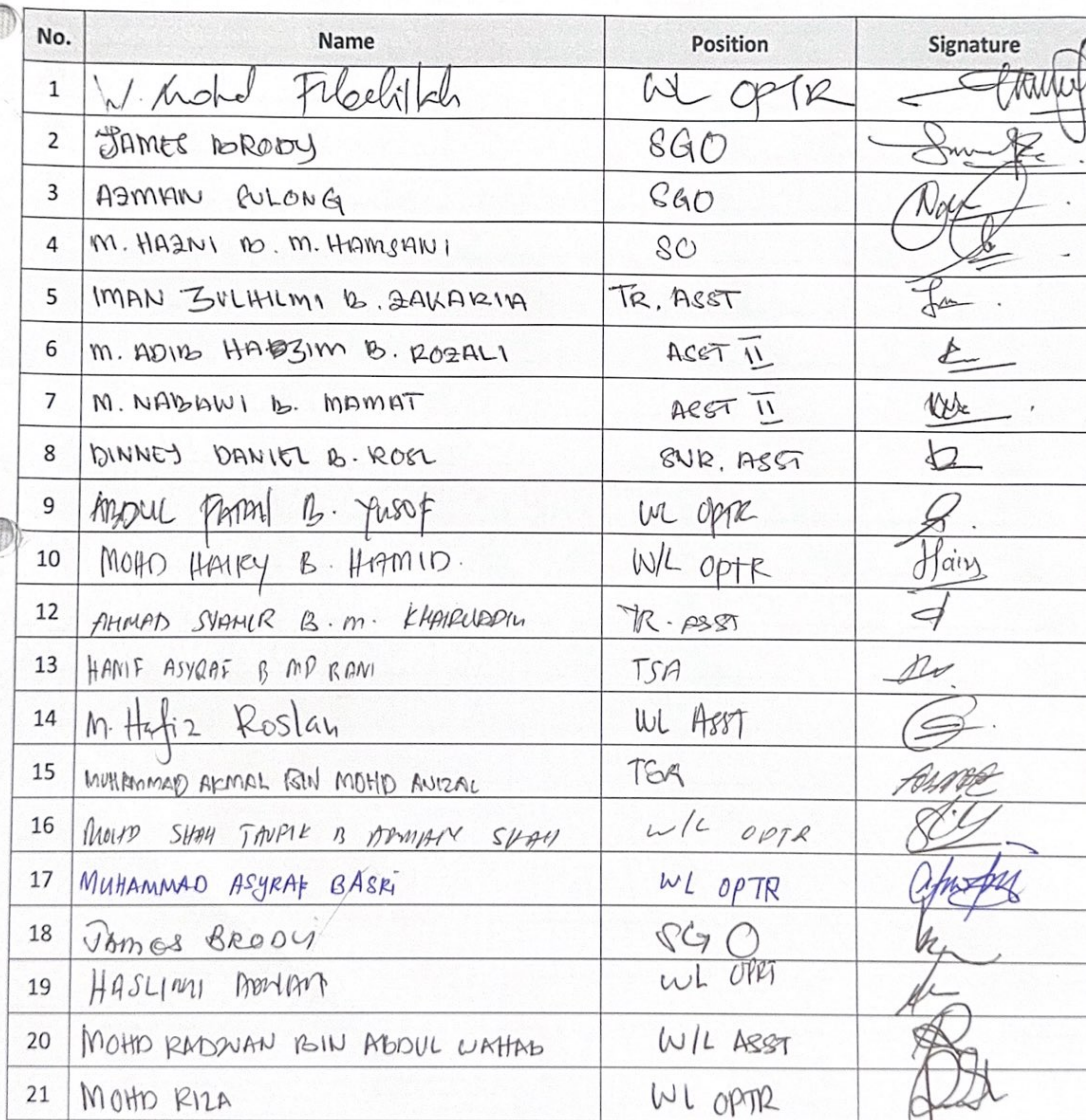 No. Name Position Signature
1 W. Mohd WL OPTR
2 JAMES BRODY SGO
3 AZMAN PULONG SGO
4 M. HAZNI B. M. HAMSANI SO
5 IMAN ZULHILMI B. ZAKARIA TR. ASST
6 M. ADIB HADZIM B. ROZALI ASST II
7 M. NABAWI B. MAMAT ASST II
8 DINNEY DANIEL B. ROSL SNR. ASST
9 ABDUL B. YUSOF WL OPTR
10 MOHD HAIRY B. HAMID. W/L OPTR
12 AHMAD SYAHIR B. M. KHAIRUDDIN TR. ASST
13 HANIF ASYRAF B MD RANI TSA
14 M. Hafiz Roslan WL ASST
15 MUHAMMAD AKMAL BIN MOHD TSA
16 MOHD SHAH TAUPIK B SHAH W/L OPTR
17 MUHAMMAD ASYRAF BASRI WL OPTR
18 JAMES BRODY SGO
19 HASLIMI WL OPRT
20 MOHD RADZUAN BIN ABDUL WAHAB W/L ASST
21 MOHD RIZA WL OPTR